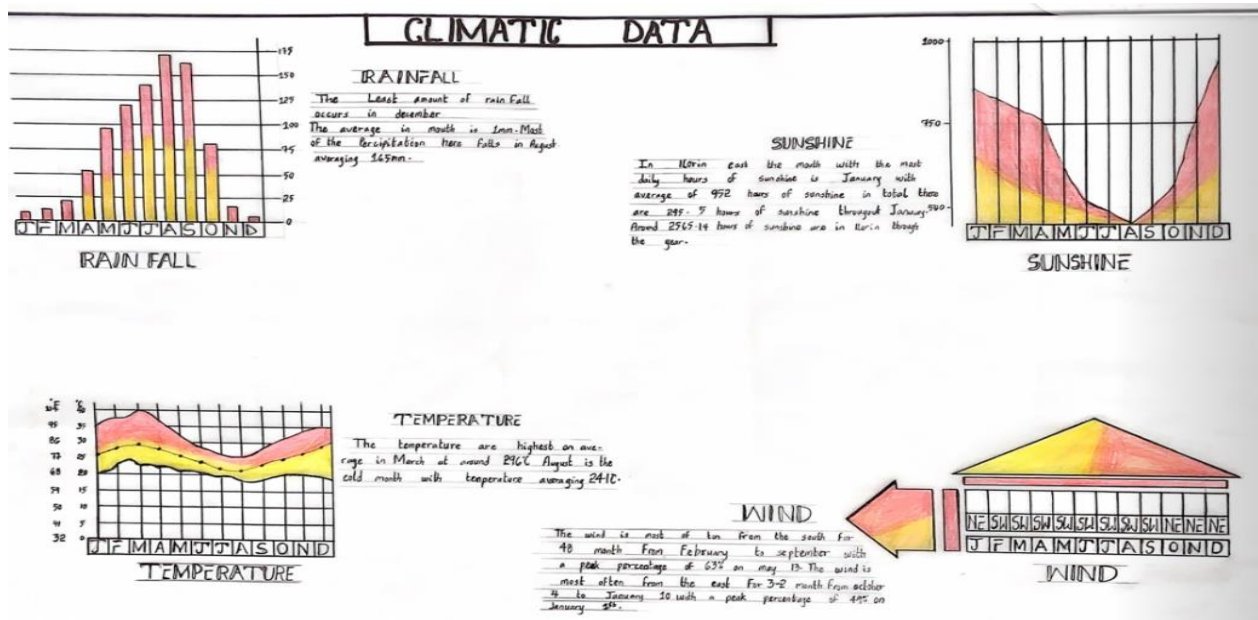 CLIMATIC DATA
175
150
125
100
75
50
25
0
J F M A M J J A S O N D
RAIN FALL
RAINFALL
The Least amount of rain Fall
occurs in december
The average in mouth is 1mm. Most
of the Percipitation here falls in August
averaging 165mm.
SUNSHINE
In ILorin east the mouth with the most
daily hours of sunshine is January with
average of 952 hours of sunshine in total there
are 295.5 hours of sunshine througout January.
Around 2565.14 hours of sunshine are in ILorin through
the year.
1000
750
500
J F M A M J J A S O N D
SUNSHINE
°F °C
95 35
86 30
77 25
68 20
59 15
50 10
41 5
32 0
J F M A M J J A S O N D
TEMPERATURE
TEMPERATURE
The temperature are highest on ave-
rage in March at around 29.6°C August is the
cold month with temperature averaging 24.1C.
WIND
The wind is most of ten from the south For
4.8 month From February to september with
a peak percentage of 63% on may 13. The wind is
most often from the east For 3-2 month From october
4 to January 10 with a peak percentage of 49% on
January 1st.
NE SW SW SW SW SW SW SW SW NE NE NE
J F M A M J J A S O N D
WIND